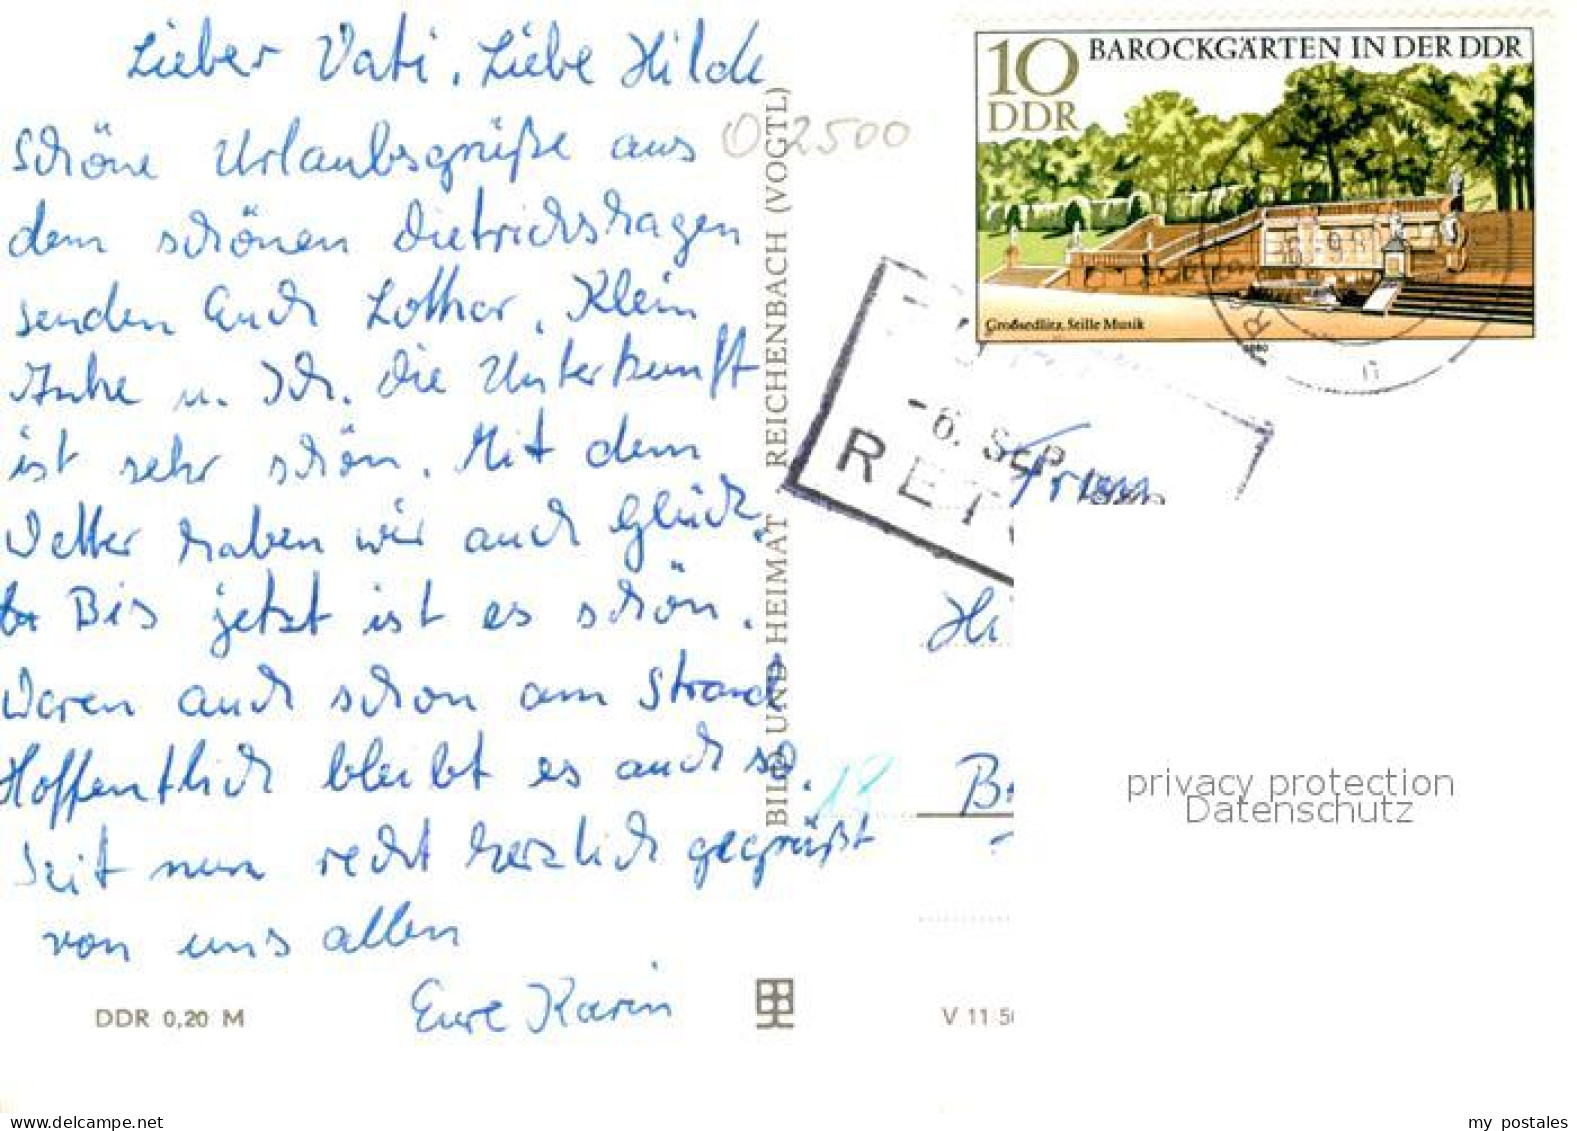 Lieber Vati, Liebe Hilde
Schöne Urlaubsgrüße aus
dem schönen Dietrichshagen
senden Euch Lothar, Klein
Anke u. Ich. Die Unterkunft
ist sehr schön. Mit dem
Wetter haben wir auch Glück.
Bis jetzt ist es schön.
Waren auch schon am Strand
Hoffentlich bleibt es auch so.
Seit nun recht herzlich gegrüßt
von uns allen
Eure Karin
DDR 0,20 M
BILD UND HEIMAT REICHENBACH (VOGTL)
02500
10
DDR
BAROCKGÄRTEN IN DER DDR
Großsedlitz, Stille Musik
1980
-6. SEP.
RET
Hi
18
V 11 50
privacy protection
Datenschutz
www.delcampe.net
my_postales